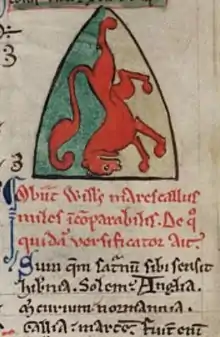 Obiit Will's marescallus
miles i̅co̅parabilis. De q°
quida̅ versificator Ait.
Sum qm̅ sat'nu̅ sibi sensit
hib'nia. Solem Anglia.
Mercurium normannia.
Gallia martem. Fuit eni̅